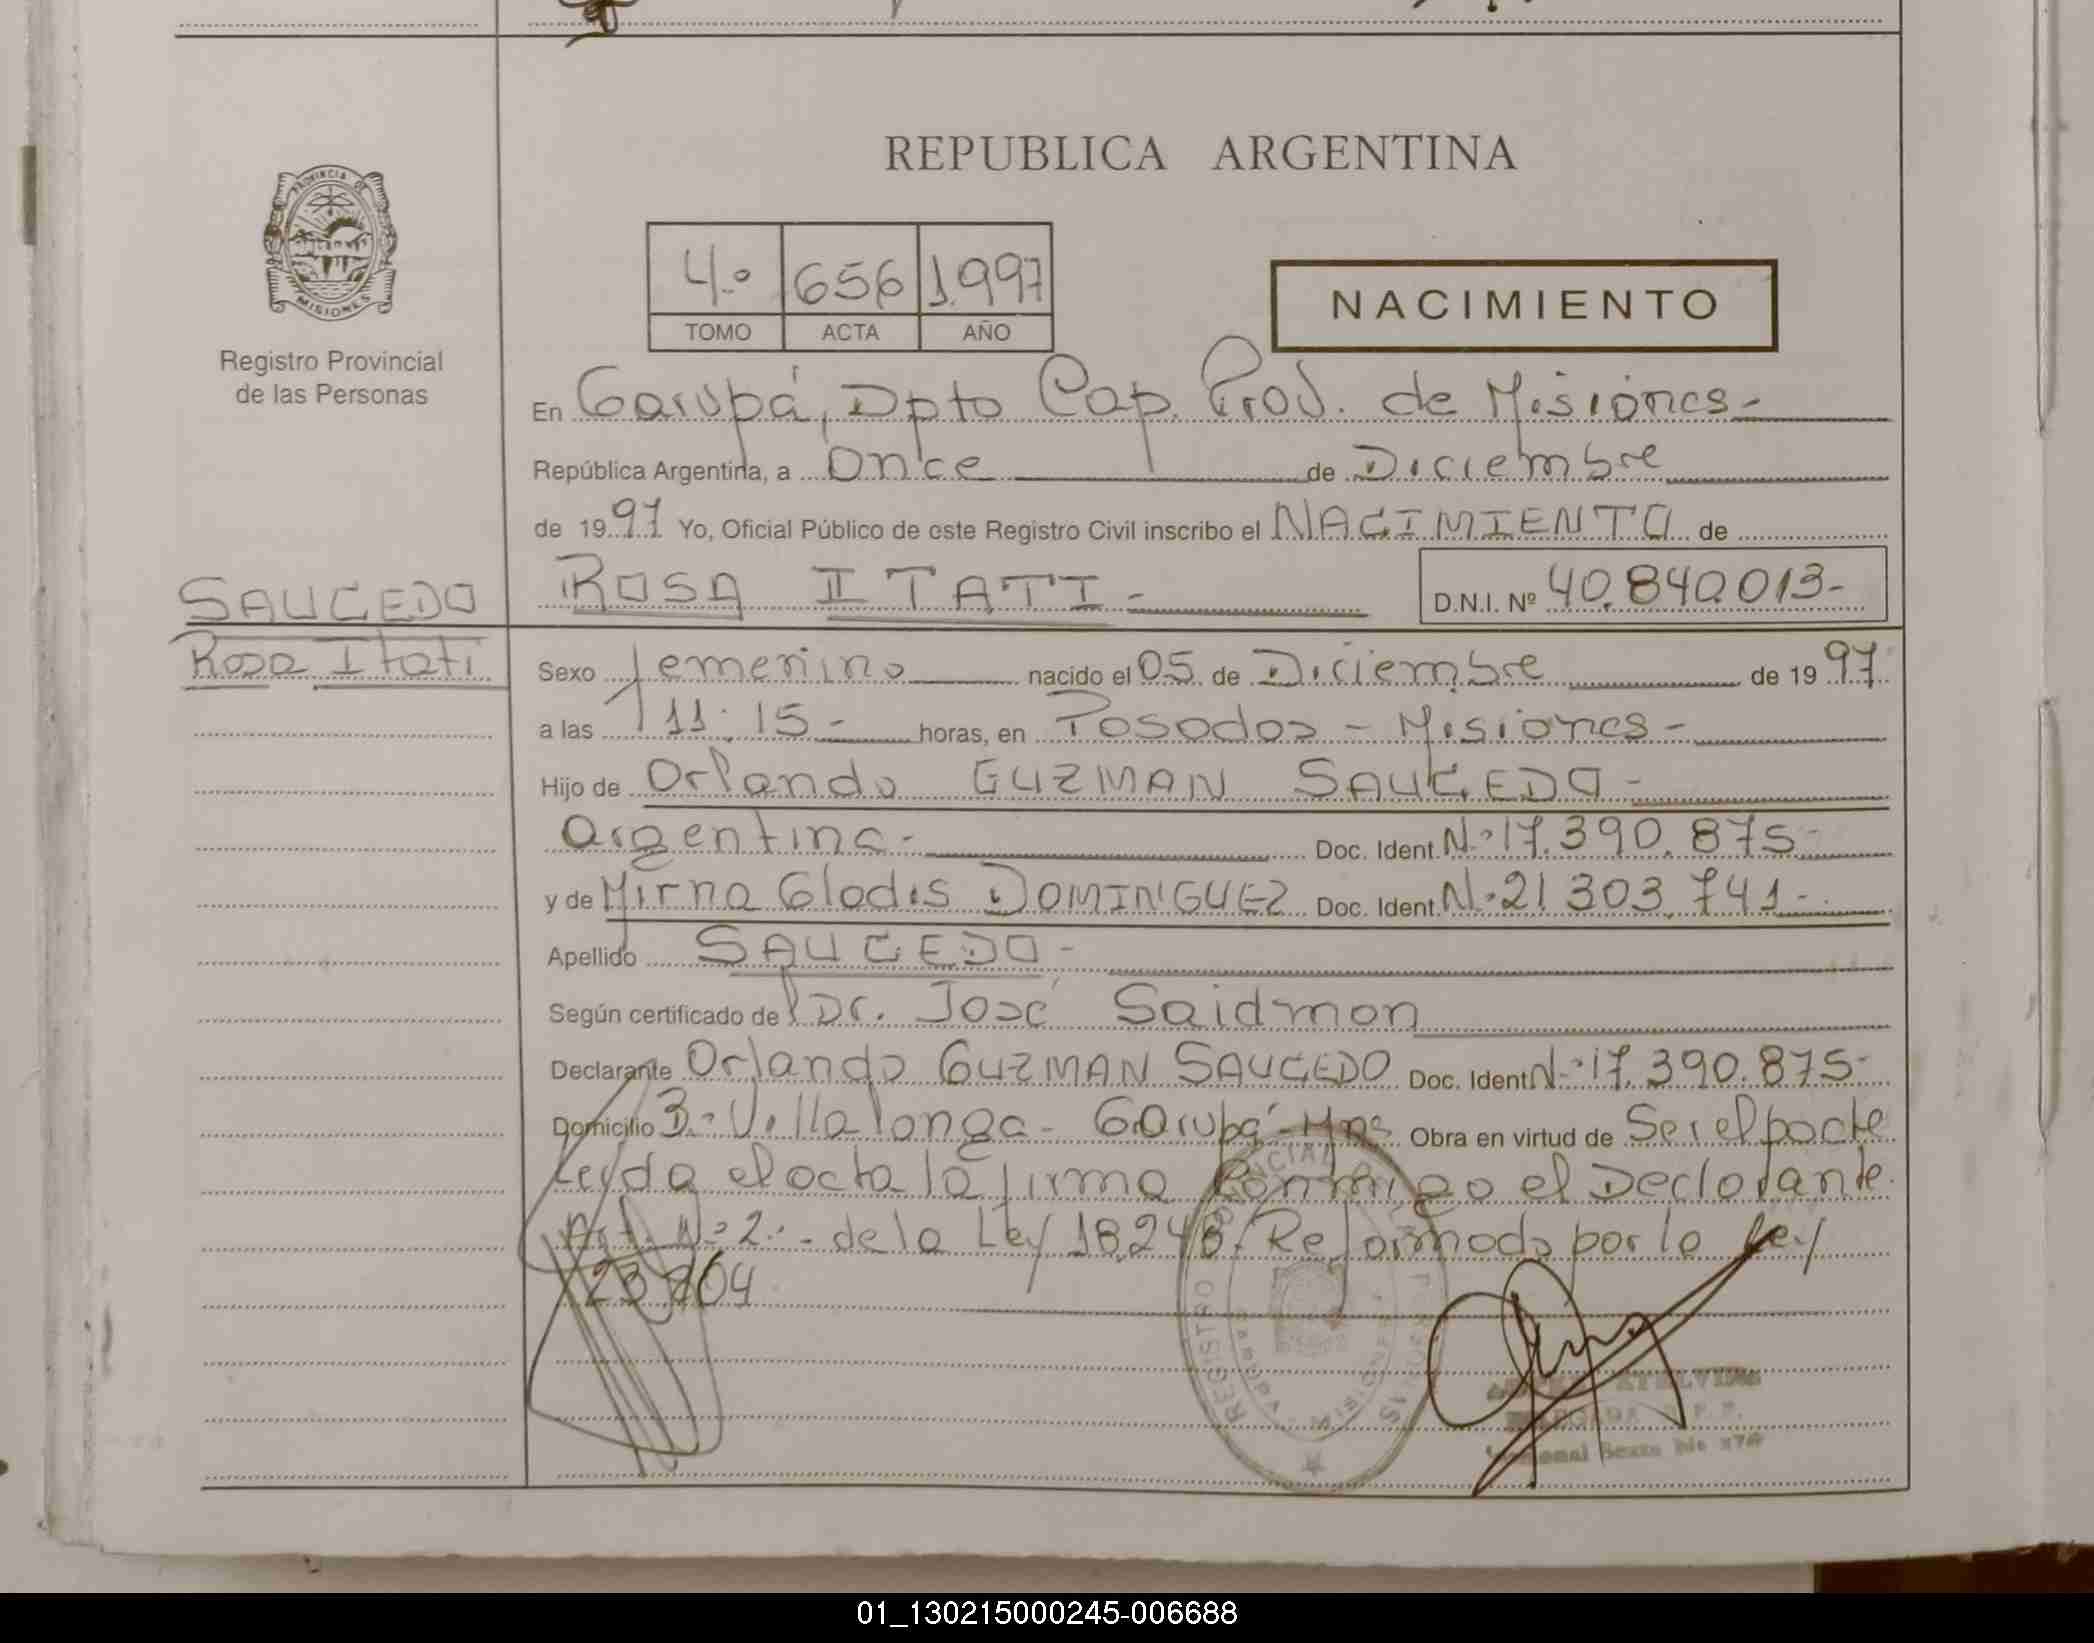 REPUBLICA ARGENTINA
PROVINCIA DE
MISIONES
Registro Provincial
de las Personas
4º 656 1.997
TOMO ACTA AÑO
NACIMIENTO
En Garupá, Dpto Cap. Prov. de Misiones-
República Argentina, a Once de Diciembre
de 1997 Yo, Oficial Público de este Registro Civil inscribo el NACIMIENTO de
SAUCEDO
Rosa Itati
ROSA ITATI- D.N.I. Nº 40.840.013-
Sexo femenino nacido el 05 de Diciembre de 1997
a las 11:15- horas, en Posadas - Misiones-
Hijo de Orlando GUZMAN SAUCEDO-
Argentina- Doc. Ident. Nº 17.390.875-
y de Mirna Gladis DOMINGUEZ Doc. Ident. Nº 21.303.741-
Apellido SAUCEDO-
Según certificado de Dr. José Saidman
Declarante Orlando GUZMAN SAUCEDO Doc. Ident Nº 17.390.875-
Domicilio Bº Villalonga - Garupá - Mnes Obra en virtud de Ser el padre
Leyda el acta la firma Conmigo el Declarante.
Art. Nº 2º - de la Ley 18.248. Reformado por la Ley
REGISTRO PROVINCIAL
MISIONES
01_130215000245-006688